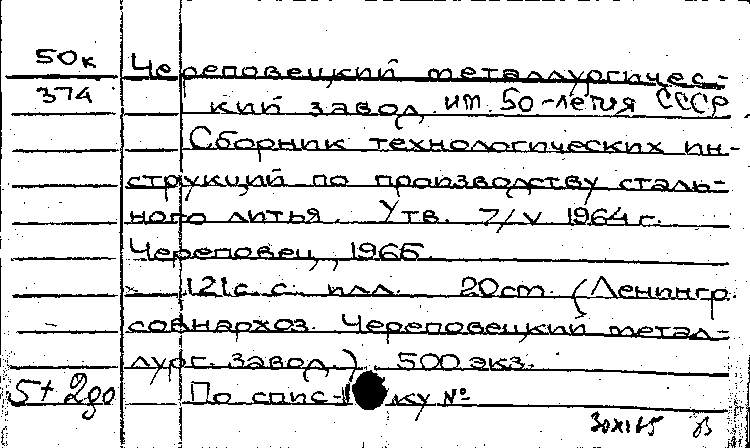 50к Череповецкий металлургичес-
374 кий завод им. 50-летия СССР.
Сборник технологических ин-
струкций по производству сталь-
ного литья. Утв. 7/V 1964 г.
Череповец, 1965.
121 с. с илл. 20 см. (Ленингр.
совнархоз. Череповецкий метал-
лург. завод.). 500 экз.
5+2до По спис-ку №